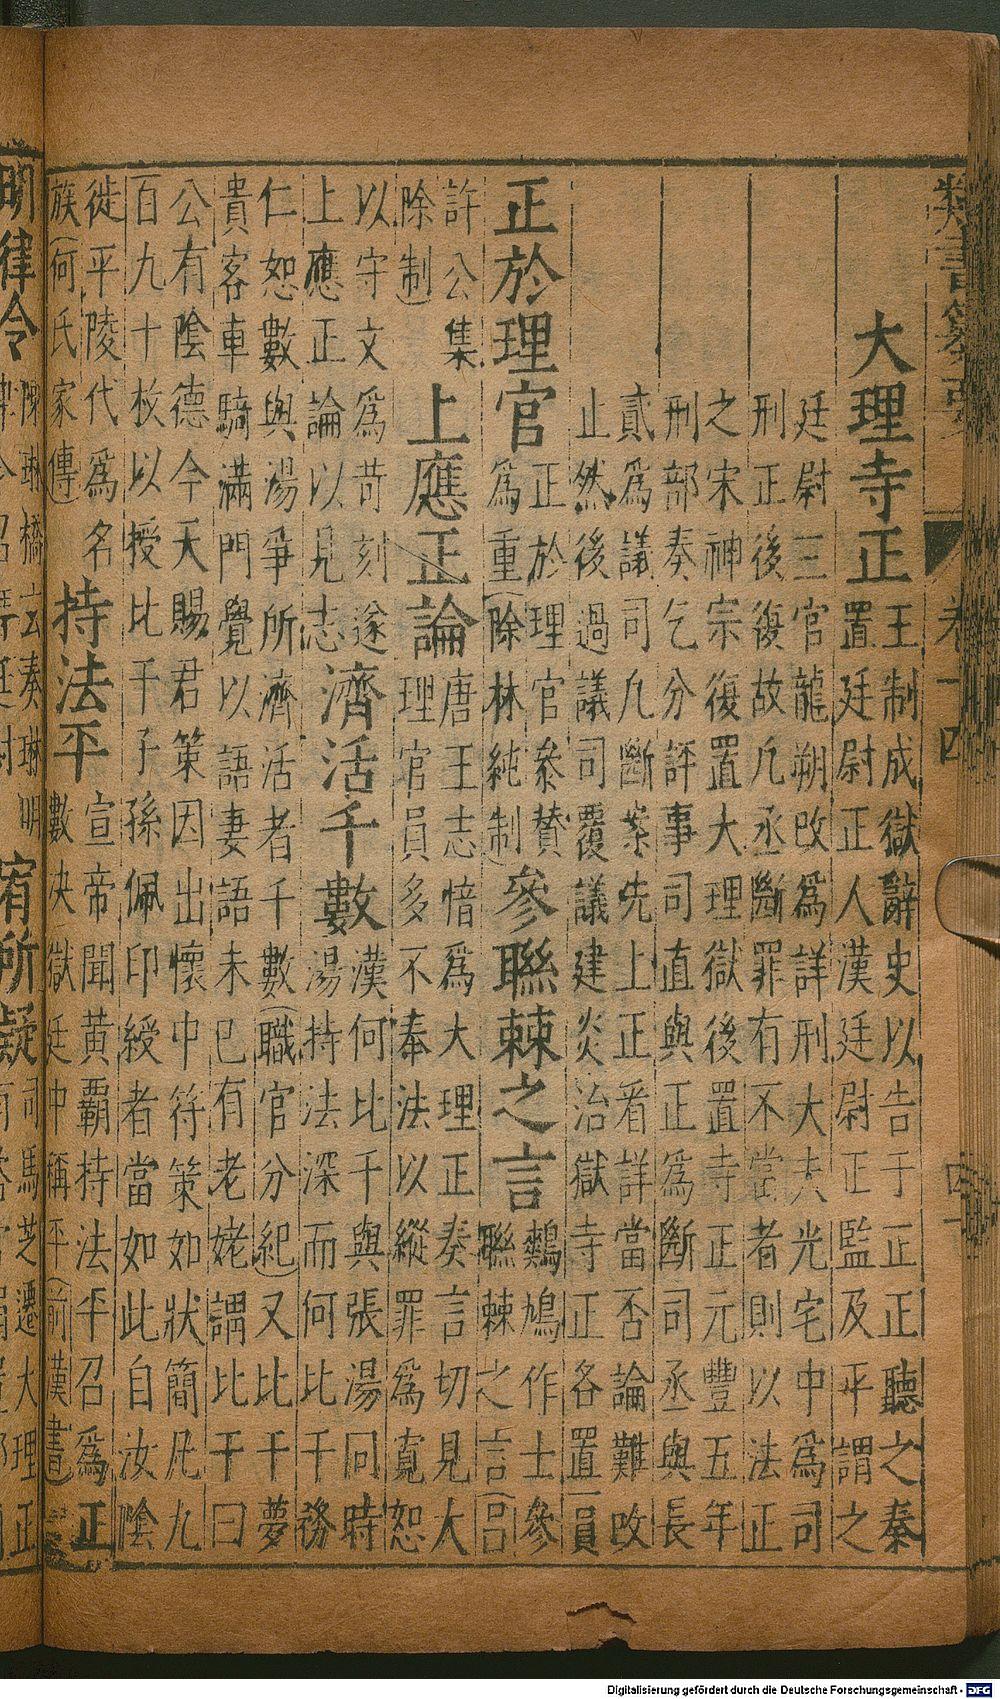 類書纂要 卷十四
大理寺正
王制成獄辭史以告于正正聽之秦
置廷尉正人漢廷尉正監及平謂之
廷尉三官龍朔改為詳刑大夫光宅中為司
刑正後復故凡丞斷罪有不當者則以法正
之宋神宗復置大理獄後置寺正元豐五年
刑部奏乞分評事司直與正為斷司丞與長
貳為議司凡斷案先上正看詳當否論難改
止然後過議司覆議建炎治獄寺正各置一員
正於理官
正於理官叅賛
為重(除林純制)
參聯棘之言
鷞鳩作士參
聯棘之言(呂
許公集
除制)
上應正論
唐王志愔為大理正奏言切見大
理官員多不奉法以縱罪為寬恕
以守文為苛刻遂
上應正論以見志
濟活千數
漢何比干與張湯同時
湯持法深而何比干務
仁恕數與湯爭所濟活者千數(職官分紀)又比干夢
貴客車騎滿門覺以語妻語未已有老姥謂比干曰
公有陰德今天賜君策因出懷中符策如狀簡凡九
百九十枚以授比干子孫佩印綬者當如此自汝陰
徙平陵代為名
族(何氏家傳)
持法平
宣帝聞黃霸持法平召為正
數决獄廷中稱平(前漢書)
明律令
陳琳橋玄奏琳明
宥所疑
司馬芝遷大理正
Digitalisierung gefördert durch die Deutsche Forschungsgemeinschaft - DFG